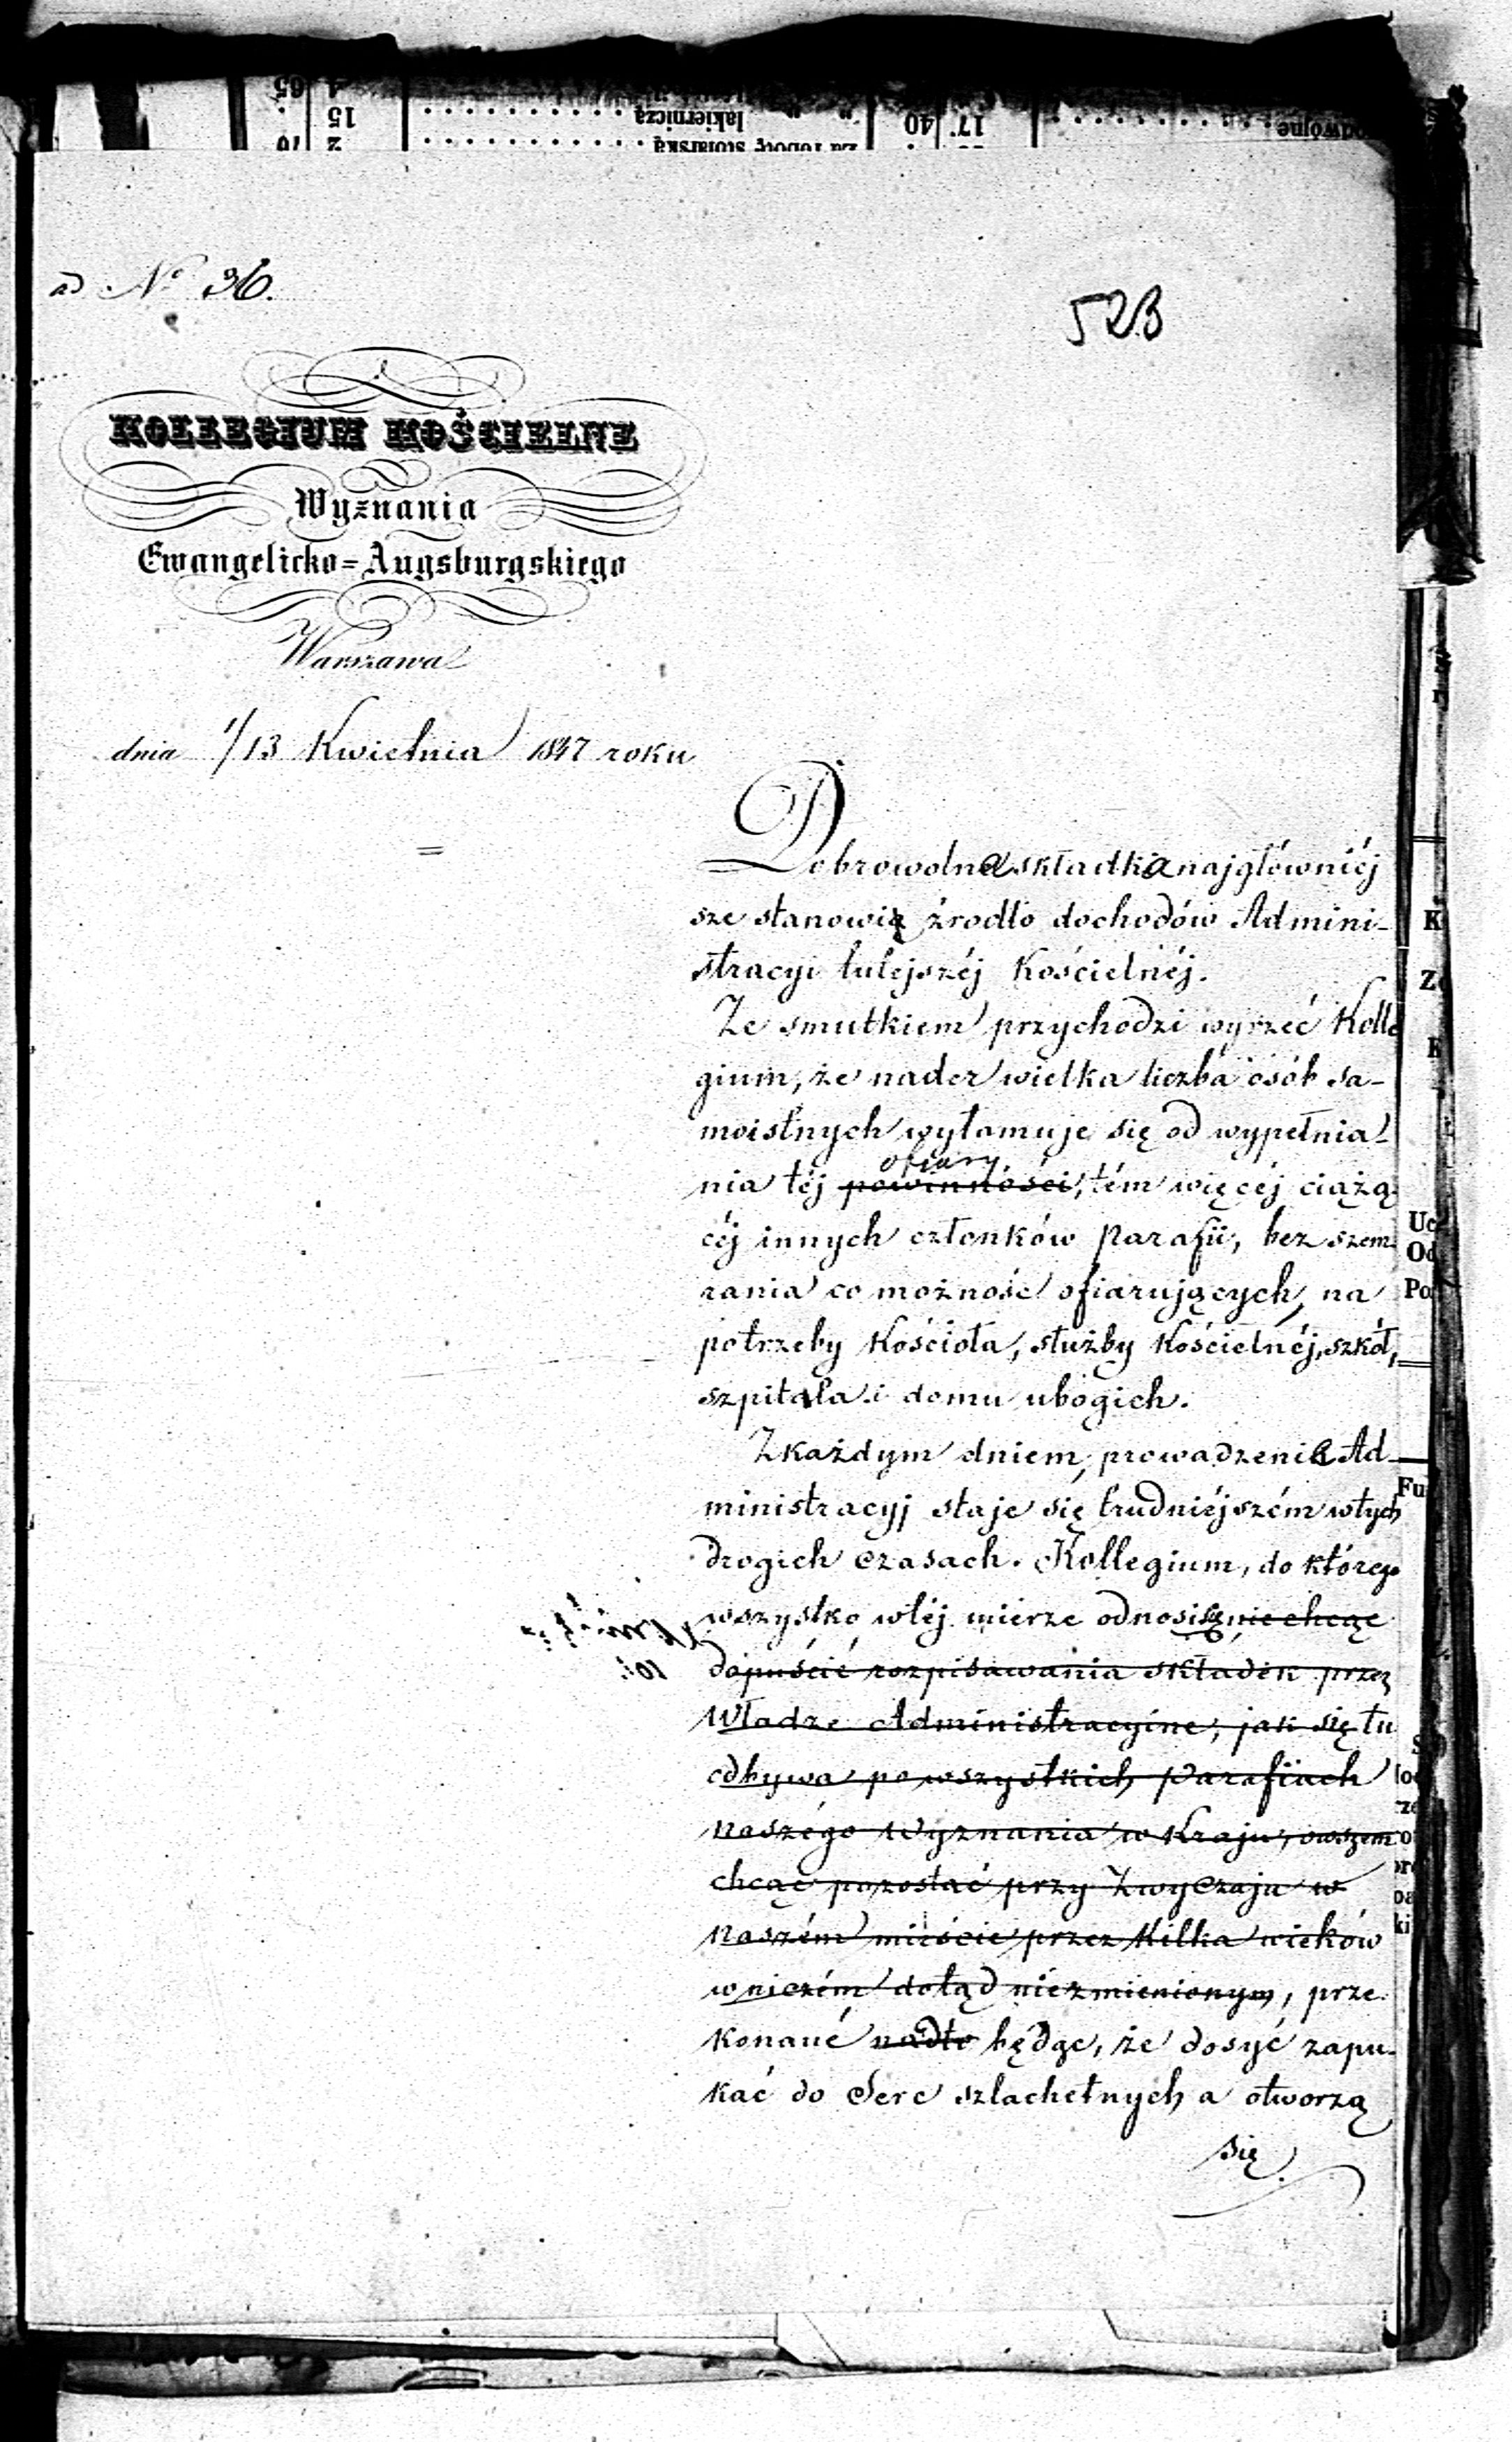 ad No 36.
523
KOLLEGIUM KOŚCIELNE
Wyznania
Ewangelicko=Augsburgskiego
Warszawa
dnia 1/13 Kwietnia 1847 roku
Dobrowolna składka najgłówniéj
sze stanowią źrodło dochodów Admini-
stracyi tutejszéj Kościelnéj.
Ze smutkiem przychodzi wyrzeć Kolle
gium, że nader wielka liczba osób sa-
moistnych wyłamuje się od wypełnia-
ofiary,
nia téj powinności, tém więcéj ciążą-
céj innych członków Parafii, bez szem-
rania co możność ofiarujących, na
potrzeby Kościoła, służby Kościelnéj, szkół,
szpitala i domu ubogich.
Z każdym dniem, prowadzenie Ad-
ministracyj staje się trudniéjszém w tych
drogich czasach. Kollegium, do którego
wszystko w téj mierze odnosi się, nie chcąc
dopuścić rozpisawania składek przez
Władze Administracyine, jak się tu
odbywa po wszystkich Parafiach
naszégo Wyznania w Kraju, owszem
chcąc pozostać przy Zwyczaju w
naszém mieście przez Kilka wieków
w niczém dotąd niezmienionym, prze-
konané nadto będąc, że dosyć zapu-
kać do Serc szlachetnych a otworzą
się
lakiernicza
Za robotę stolarską
15
2
40
17.